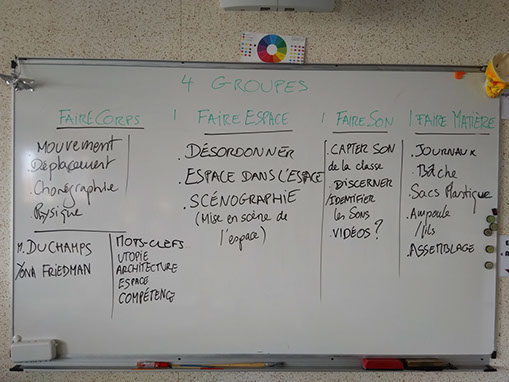 4 GROUPES
FAIRE CORPS
Mouvement
.Déplacement
.Chorégraphie
Physique
M. DUCHAMPS
YONA FRIEDMAN
MOTS-CLEFS
UTOPIE
ARCHITECTURE
ESPACE
COMPÉTENCE
1 FAIRE ESPACE
.DÉSORDONNER
.ESPACE DANS L'ESPACE
.SCÉNOGRAPHIE
(Mise en scène de
l'espace)
1 FAIRE SON
.CAPTER SON
de la classe
.DISCERNER
/IDENTIFIER
les sons
.VIDÉOS ?
1 FAIRE MATIÈRE
.JOURNAUX
.Bâche
Sacs Plastique
.Ampoule
/fils
.ASSEMBLAGE